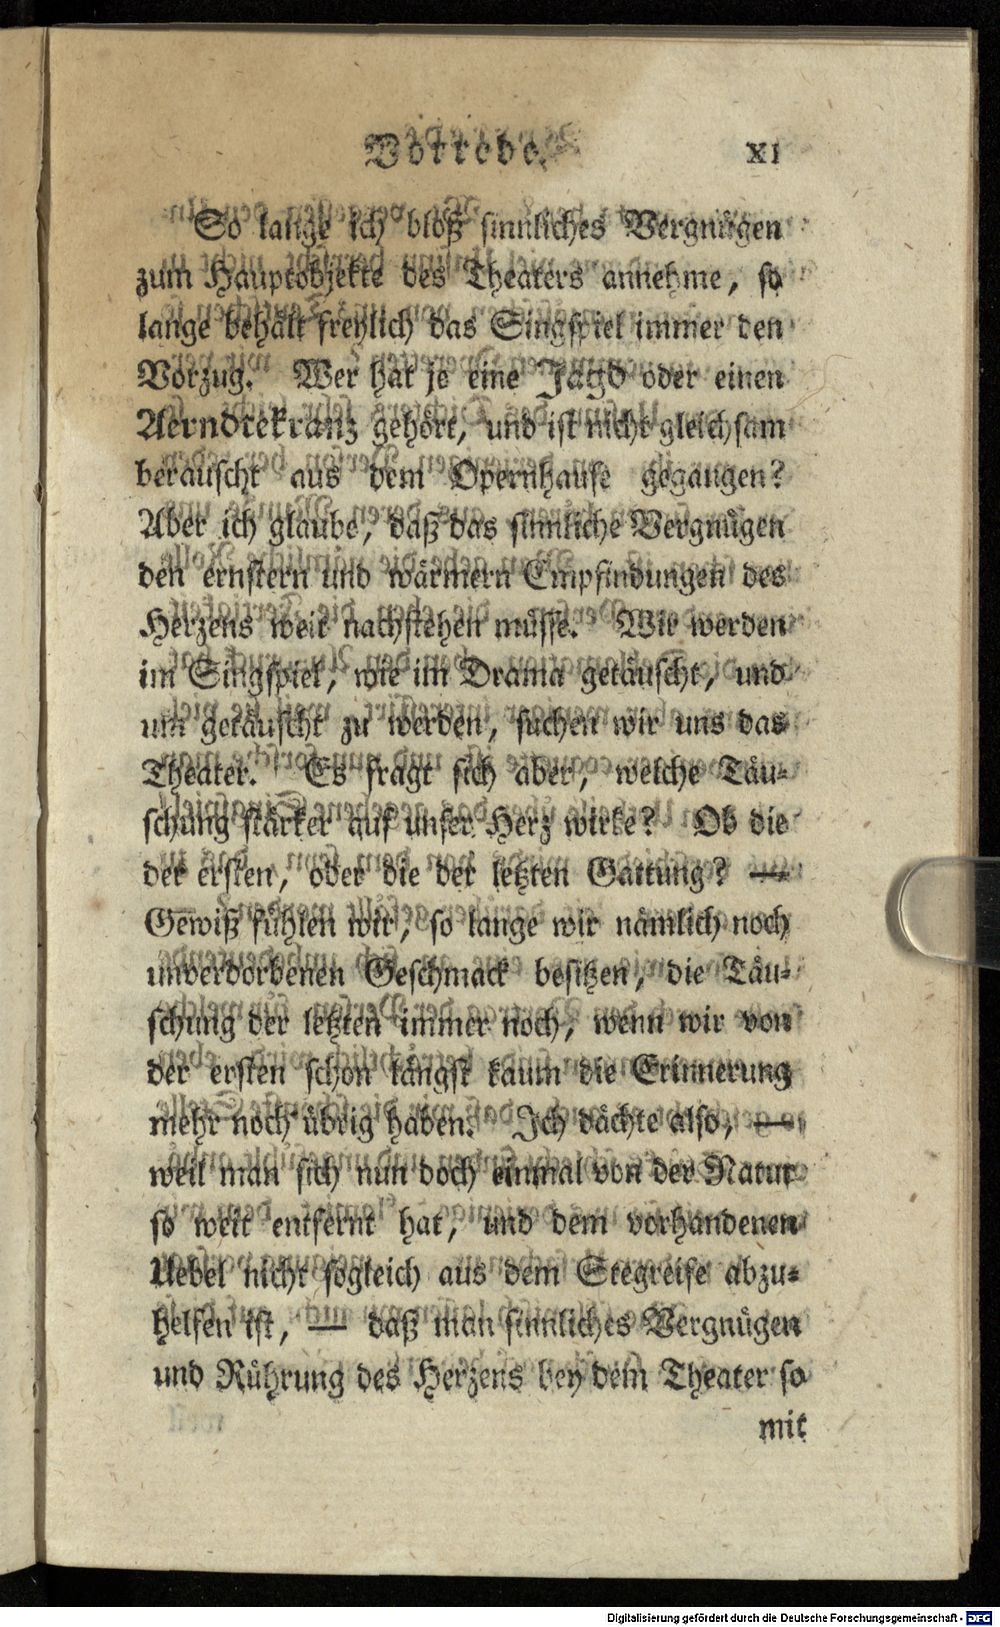 Vorrede. XI
So lange ich bloß sinnliches Vergnügen
zum Hauptobjekte des Theaters annehme, so
lange behält freylich das Singspiel immer den
Vorzug. Wer hat je eine Jagd oder einen
Aerndtekranz gehört, und ist nicht gleichsam
berauscht aus dem Opernhause gegangen?
Aber ich glaube, daß das sinnliche Vergnügen
den ernstern und wärmern Empfindungen des
Herzens weit nachstehen müsse. Wir werden
im Singspiel, wie im Drama getäuscht, und
um getäuscht zu werden, suchen wir uns das
Theater. Es fragt sich aber, welche Täu-
schung stärker auf unser Herz wirke? Ob die
der ersten, oder die der letzten Gattung? —
Gewiß fühlen wir, so lange wir nämlich noch
unverdorbenen Geschmack besitzen, die Täu-
schung der letzten immer noch, wenn wir von
der ersten schon längst kaum die Erinnerung
mehr noch übrig haben. Ich dächte also, —
weil man sich nun doch einmal von der Natur
so weit entfernt hat, und dem vorhandenen
Uebel nicht sogleich aus dem Stegreife abzu-
helfen ist, — daß man sinnliches Vergnügen
und Rührung des Herzens bey dem Theater so
mit
Digitalisierung gefördert durch die Deutsche Forschungsgemeinschaft - DFG